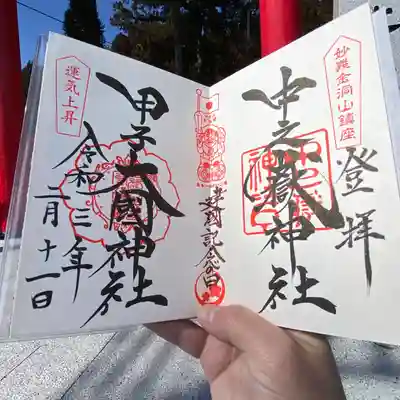 妙義金洞山鎮座
登拝
中之嶽神社
建国記念の日
運気上昇
甲子大國神社
令和三年
二月十一日